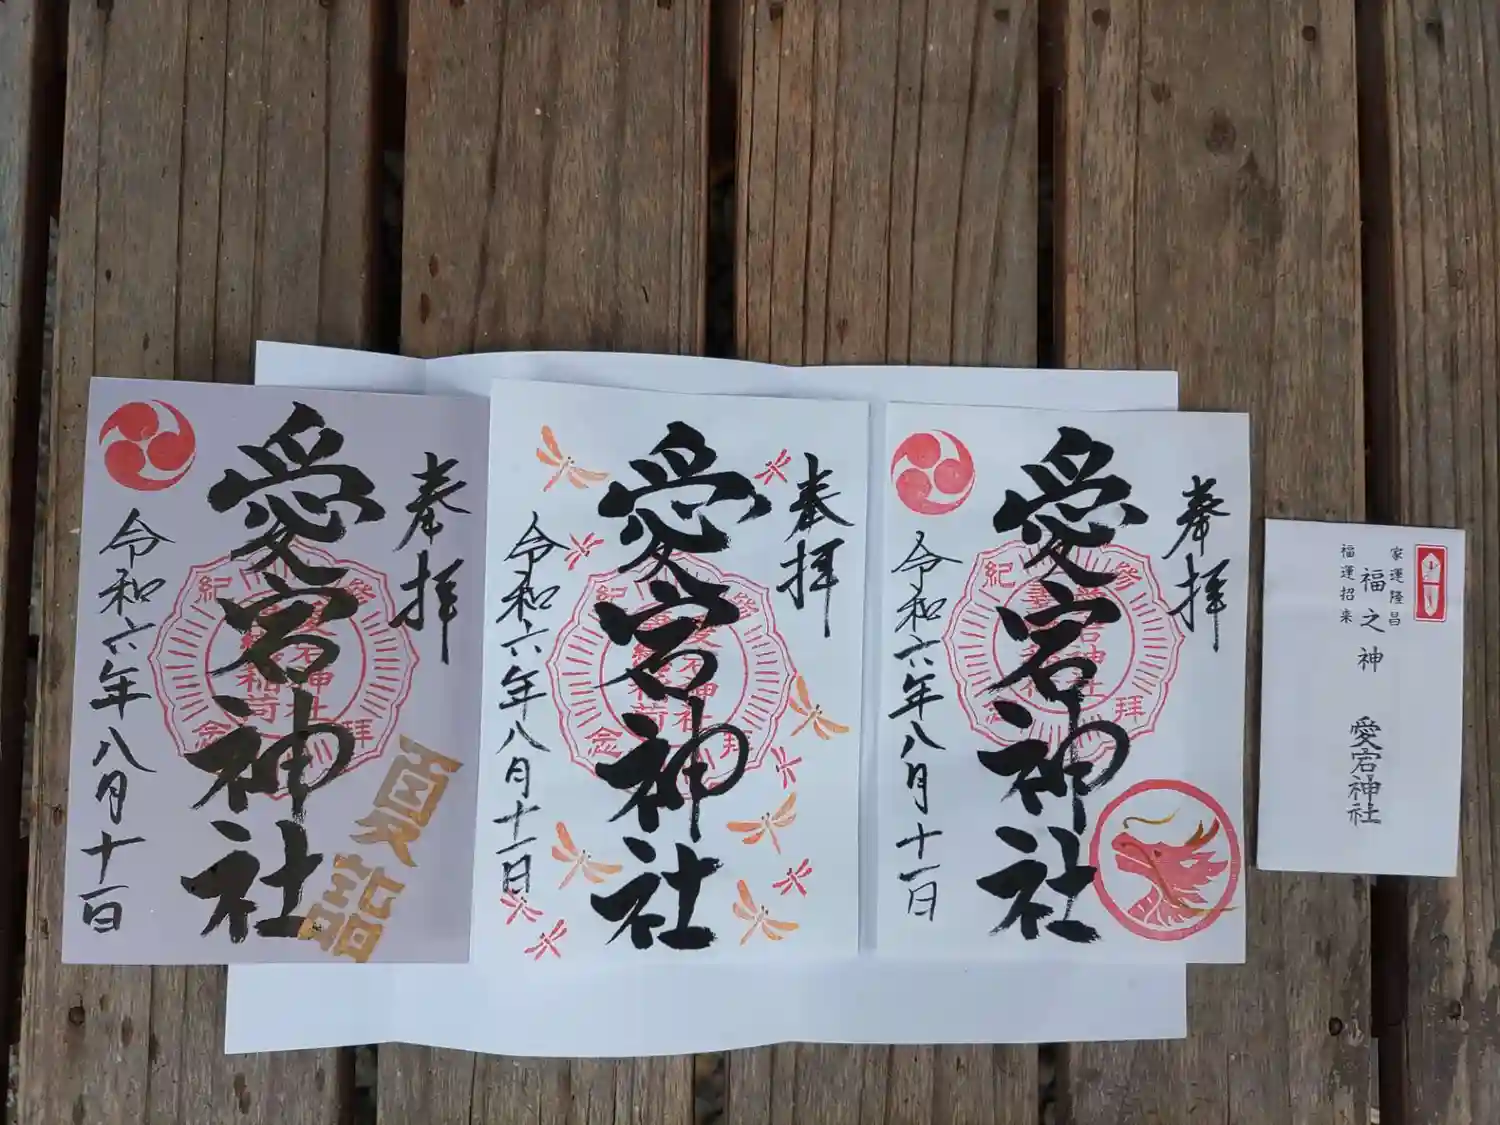 奉拝
愛宕神社
令和六年八月十一日
夏詣
奉拝
愛宕神社
令和六年八月十一日
奉拝
愛宕神社
令和六年八月十一日
家運隆昌
福之神 愛宕神社
福運招来